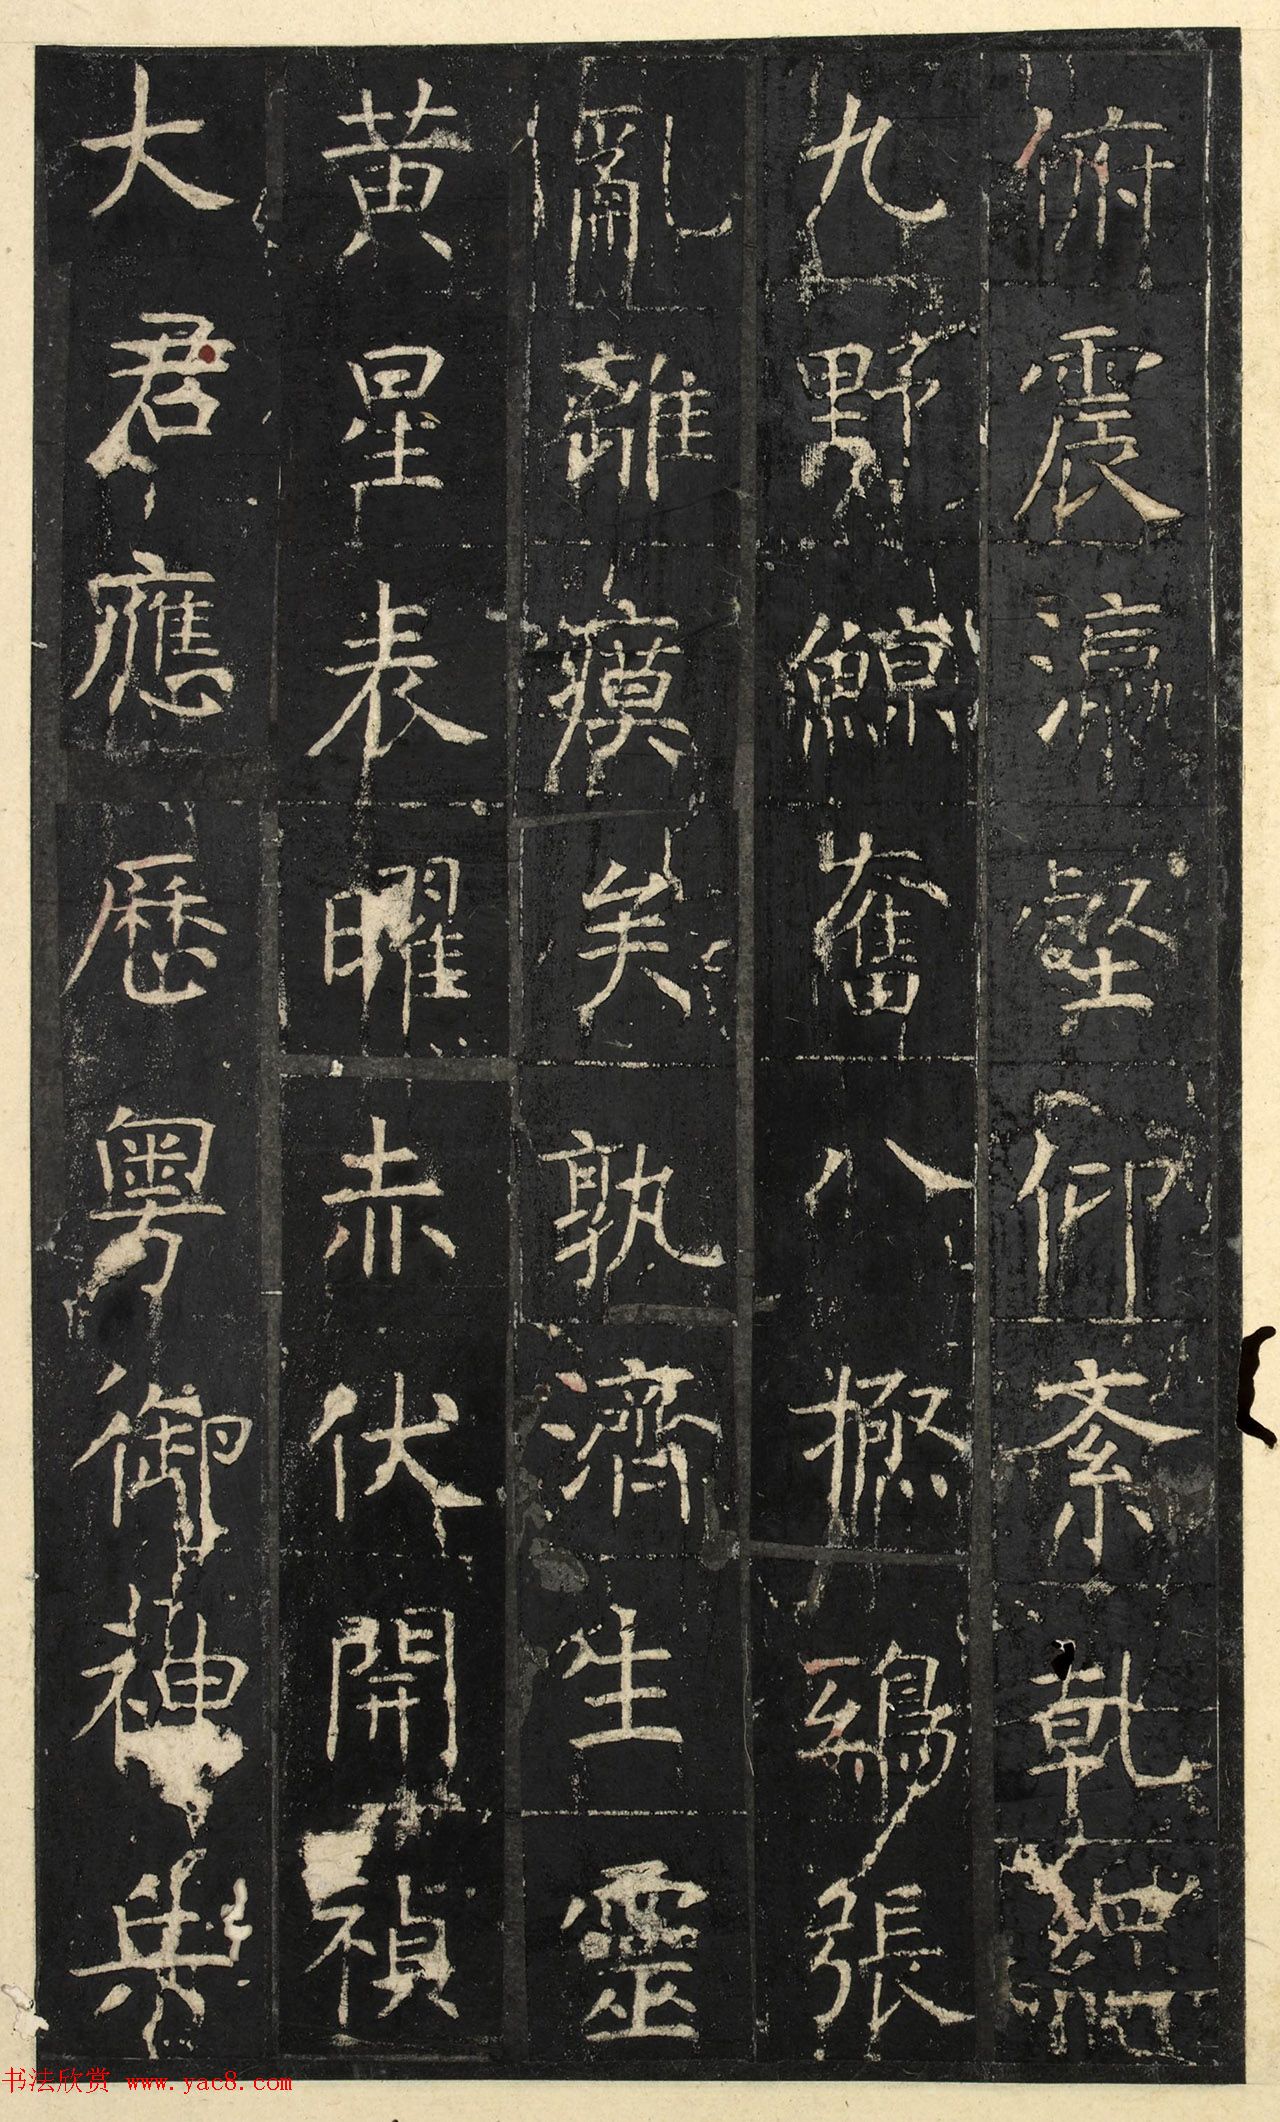 俯震瀛壑仰紊乾
九野鯨奮八極鴞張
亂離瘼矣孰濟生靈
黃星表曜赤伏開禎
大君應歷粵御神兵
书法欣赏 www.yac8.com